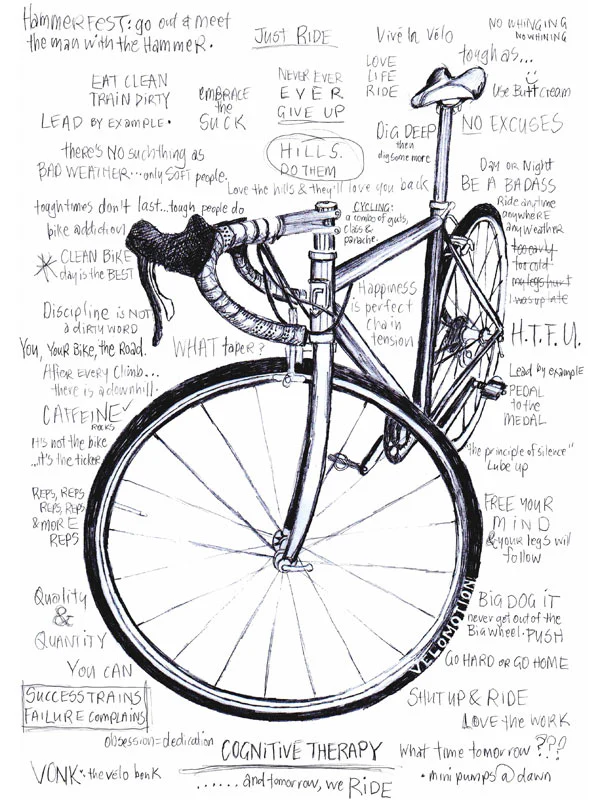 HammerFest: go out & meet
the man with the Hammer.
Just RIDE
Vive la Vélo
NO WHINGING
NO WHINING
EAT CLEAN
TRAIN DIRTY
LEAD BY EXAMPLE.
EMBRACE
the
SUCK
NEVER EVER
EVER
GIVE UP
LOVE
LIFE
RIDE
toughas...
Use Butt cream
NO EXCUSES
there's NO suchthing as
BAD WEATHER...only SOFT people.
HILLS.
DO THEM
DiG DEEP
then
digsome more
Love the hills & they'll love you back
Day or Night
BE A BADASS
Ride anytime
anywhere
anyweather
too early
too cold
my legs hurt
I was up late
toughtimes don't last...tough people do
bike addiction
CYCLING:
a combo of guts,
class &
panache.
CLEAN BIKE
day is the BEST
Discipline is NOT
a DIRTY WORD
Happiness
is perfect
chain
tension
You, Your Bike, the Road.
WHAT taper?
H.T.F.U.
After every climb...
there is a downhill.
Lead by example
PEDAL
to the
MEDAL
CAFFEINE
ROCKS
It's not the bike
...it's the ticker
"the principle of silence"
Lube up
REPS, REPS
REPS, REPS
& MORE
REPS
FREE YOUR
MIND
& your legs will
follow
Quality
&
QUANTITY
BIG DOG iT
never get out of the
Big wheel. PUSH
VELOMOTION
YOU CAN
GO HARD OR GO HOME
SUCCESS TRAINS
FAILURE COMPLAINS
SHUT UP & RIDE
LOVE the WORK
obsession=dedication
COGNITIVE THERAPY
What time tomorrow ???
VONK: the vélo bonk
......and tomorrow, we RIDE
• mini pumps @ dawn